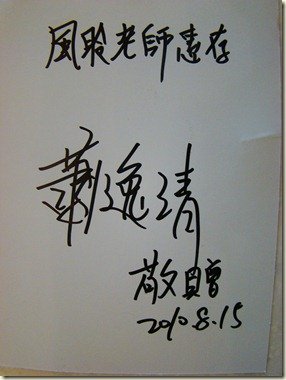 風聆老師惠存
蕭逸清
敬贈
2010.8.15